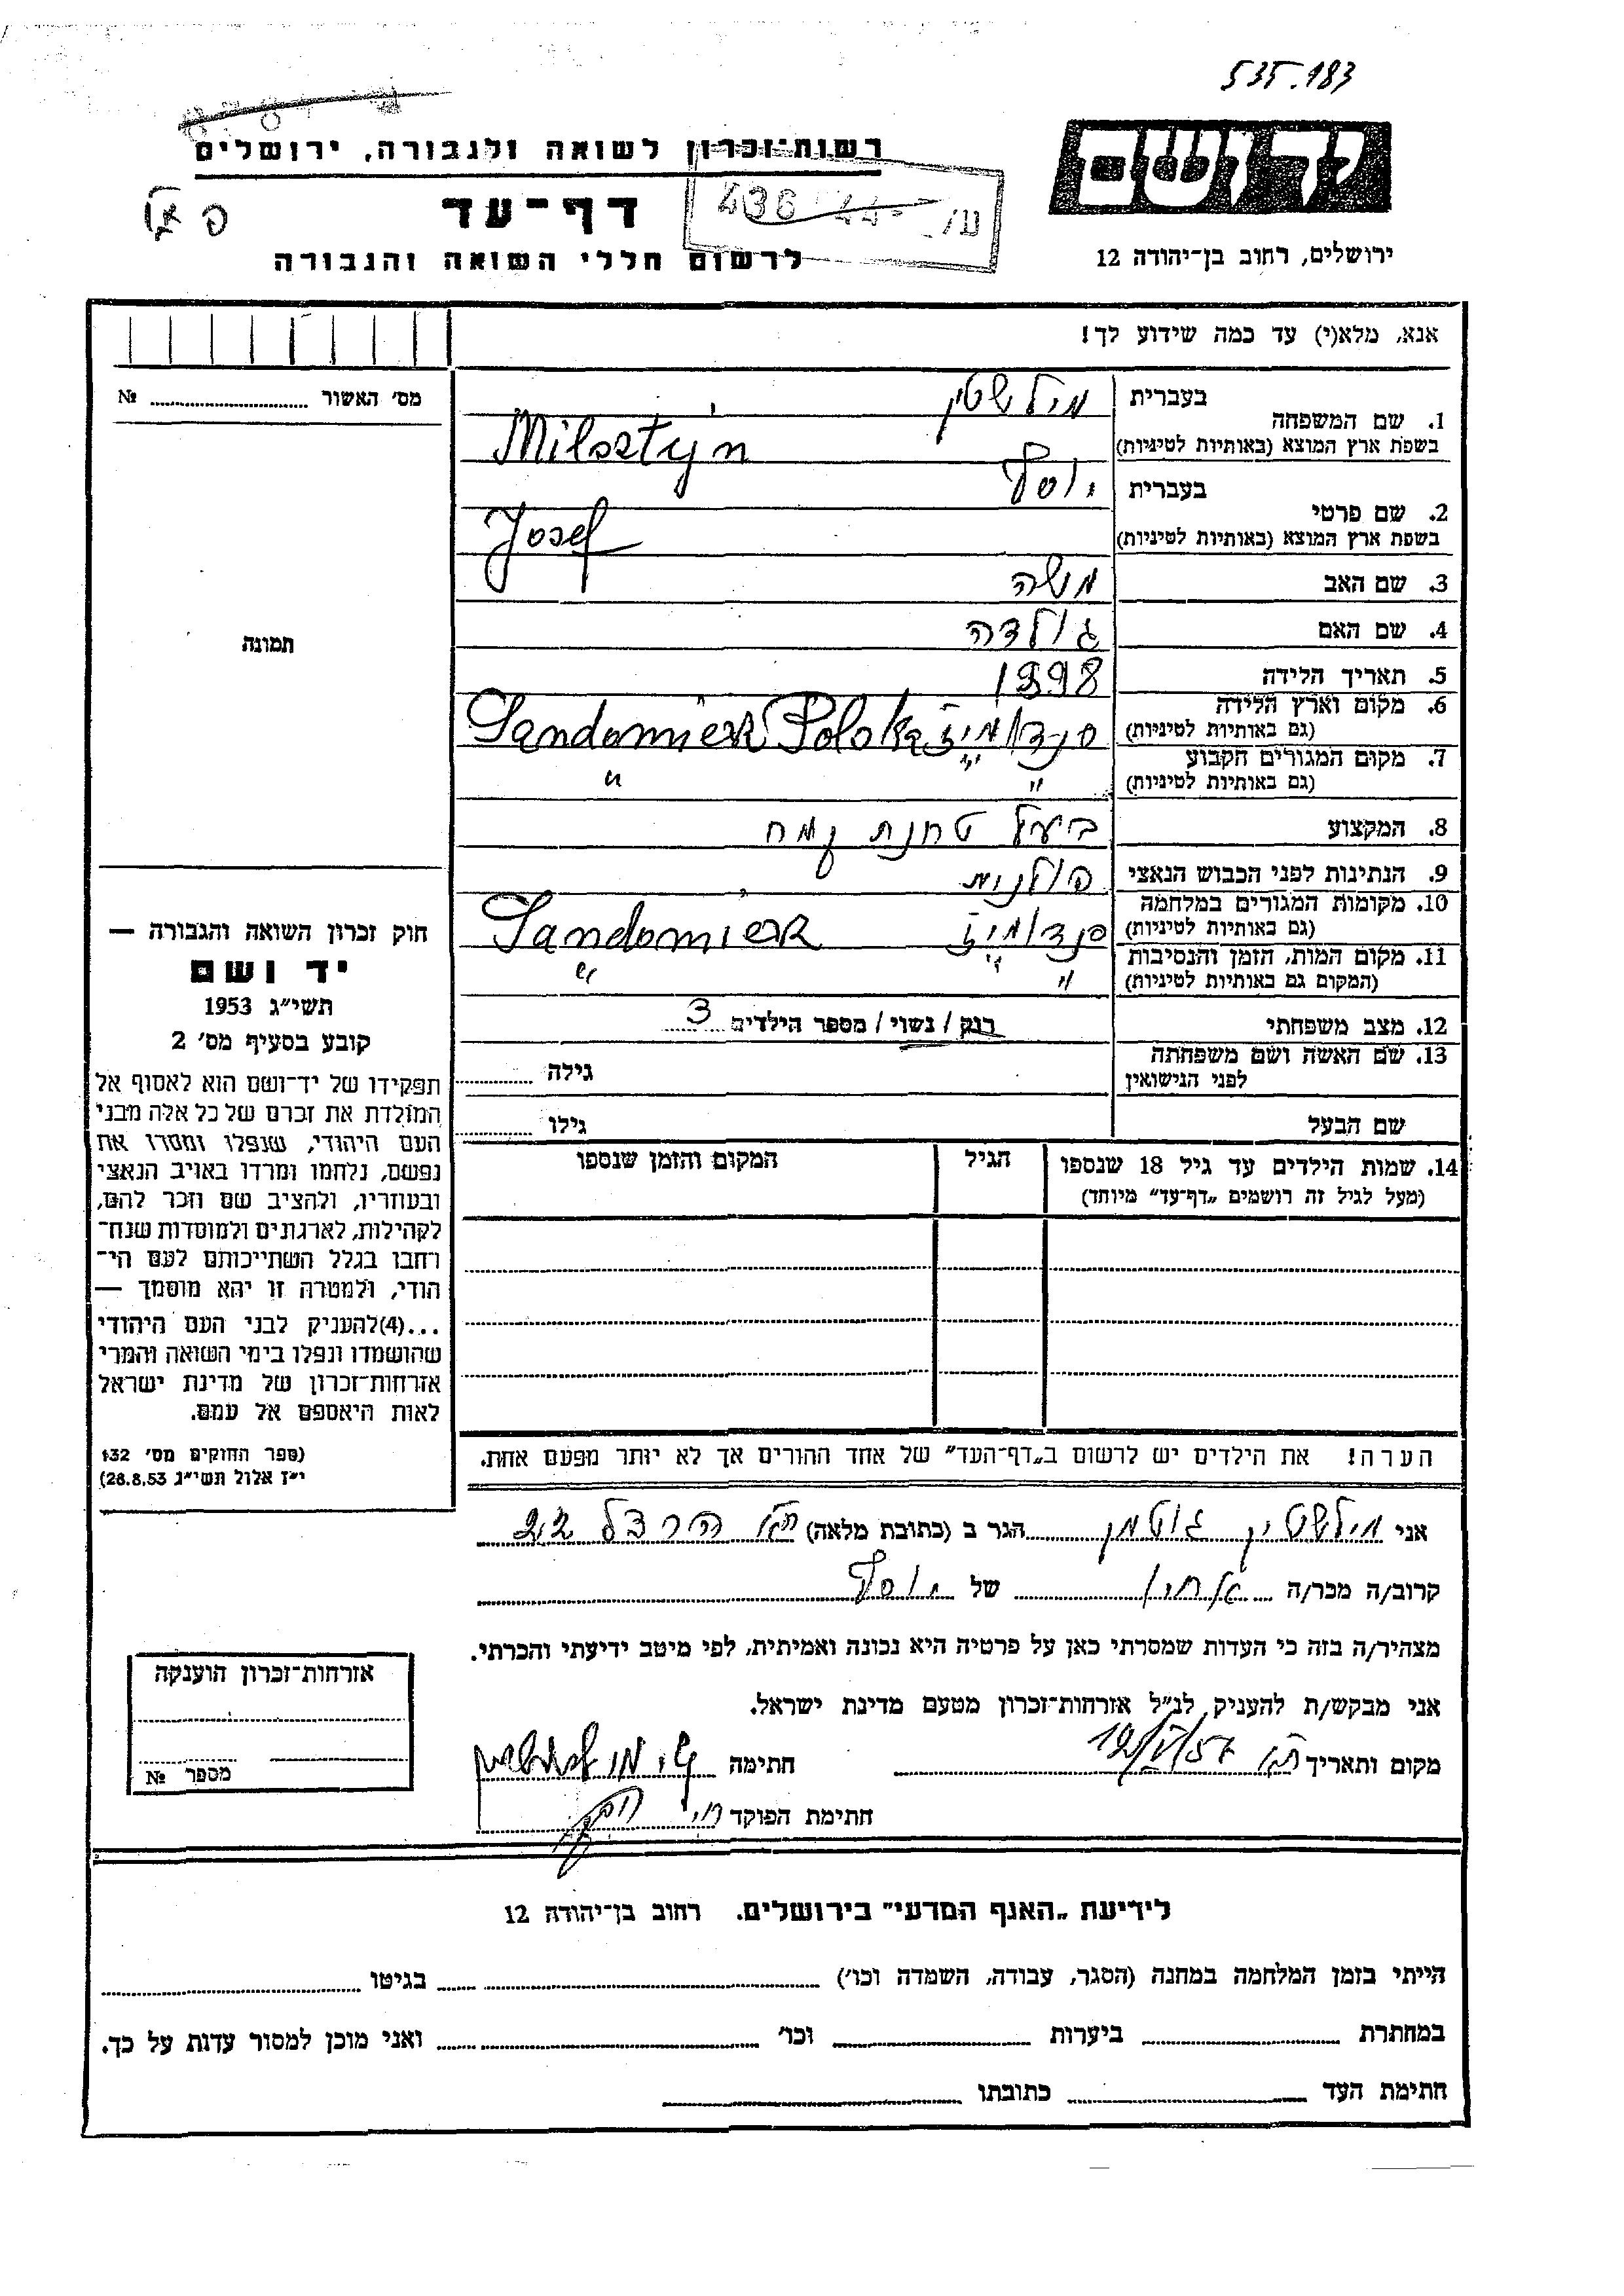 535.183
רשות־זכרון לשואה ולגבורה, ירושלים
דף־עד
לרשום חללי השואה והגבורה
יד ושם
ירושלים, רחוב בן־יהודה 12
אנא, מלא(י) עד כמה שידוע לך!
מס׳ האשור № 
תמונה
1. שם המשפחה בעברית מילשטין
בשפת ארץ המוצא (באותיות לטיניות) Milsztyn
2. שם פרטי בעברית יוסף
בשפת ארץ המוצא (באותיות לטיניות) Josef
3. שם האב משה
4. שם האם גולדה
5. תאריך הלידה 1898
6. מקום וארץ הלידה
(גם באותיות לטיניות) סנדומיז Sandomierz Polska
7. מקום המגורים הקבוע
(גם באותיות לטיניות) " "
8. המקצוע בעל טחנת קמח
9. הנתינות לפני הכבוש הנאצי פולנית
10. מקומות המגורים במלחמה
(גם באותיות לטיניות) סנדומיז Sandomierz
11. מקום המות, הזמן והנסיבות
(המקום גם באותיות לטיניות) " "
12. מצב משפחתי רווק / נשוי / מספר הילדים 3
13. שם האשה ושם משפחתה
לפני הנישואין גילה
שם הבעל גילו
14. שמות הילדים עד גיל 18 שנספו הגיל המקום והזמן שנספו
(מעל לגיל זה רושמים „דף־עד” מיוחד)
הערה! את הילדים יש לרשום ב„דף־העד” של אחד ההורים אך לא יותר מפעם אחת.
חוק זכרון השואה והגבורה —
יד ושם
תשי״ג 1953
קובע בסעיף מס׳ 2
תפקידו של יד־ושם הוא לאסוף אל
המולדת את זכרם של כל אלה מבני
העם היהודי, שנפלו ומסרו את
נפשם, נלחמו ומרדו באויב הנאצי
ובעוזריו, ולהציב שם וזכר להם,
לקהילות, לארגונים ולמוסדות שנח־
רחבו בגלל השתייכותם לעם הי־
הודי, ולמטרה זו יהא מוסמך —
...(4) להעניק לבני העם היהודי
שהושמדו ונפלו בימי השואה והמרי
אזרחות־זכרון של מדינת ישראל
לאות היאספם אל עמם.
(ספר החוקים מס׳ 132
י״ז אלול תשי״ג 28.8.53)
אני מילשטין גוטמן הגר ב (כתובת מלאה) ת״א הרצל 22
קרוב/ה מכר/ה אחיו של יוסף
מצהיר/ה בזה כי העדות שמסרתי כאן על פרטיה היא נכונה ואמיתית, לפי מיטב ידיעתי והכרתי.
אני מבקש/ת להעניק לנ״ל אזרחות־זכרון מטעם מדינת ישראל.
מקום ותאריך ת״א חתימה
חתימת הפוקד
אזרחות־זכרון הוענקה
מספר №
לידיעת „האגף המדעי” בירושלים. רחוב בן־יהודה 12
הייתי בזמן המלחמה במחנה (הסגר, עבודה, השמדה וכו׳) בגיטו
במחתרת ביערות וכו׳ ואני מוכן למסור עדות על כך.
חתימת העד כתובתו